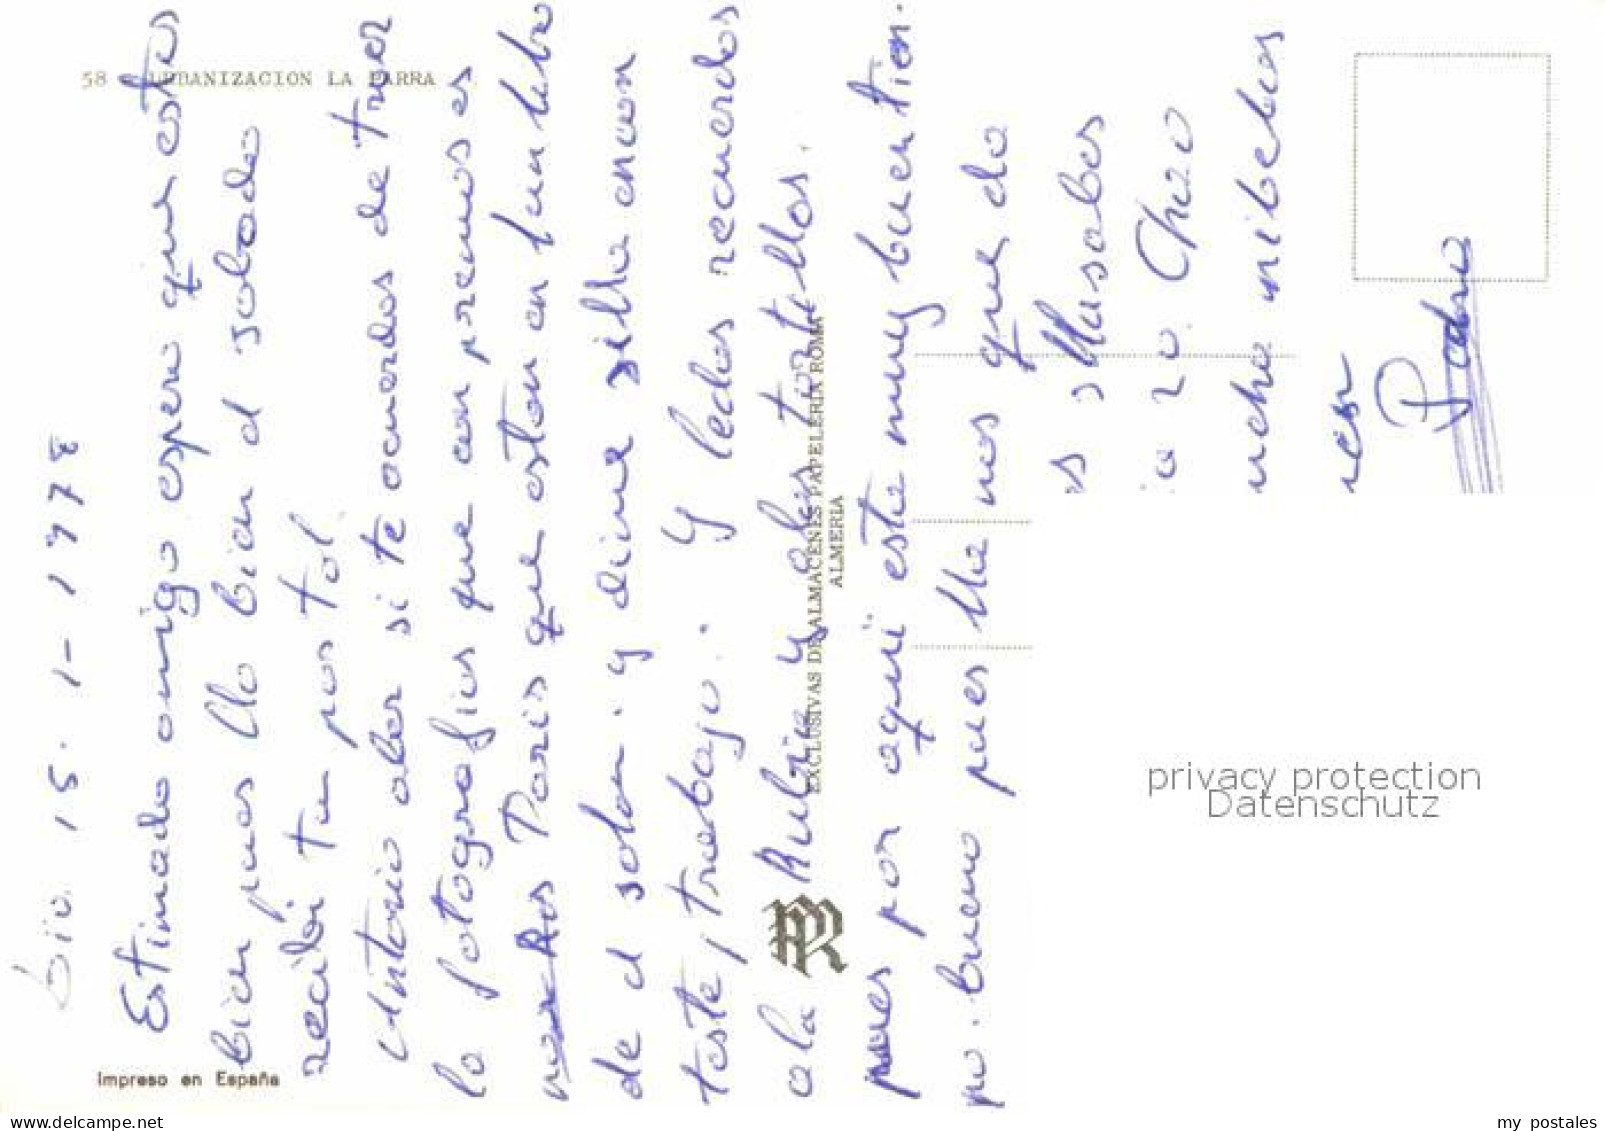 58 URBANIZACION LA PARRA
15-1-1978
Estimado amigo espero que estes
bien pues llo bien el sabado
recibi tu postal.
Antonio aber si te acuerdas de traer
la fotografias que con premos es
Paris que estan en
de el solar. y dime silla encon
taste, trabajo. y ledas recuerdos
a la Rubia y alas tortillos.
pues por aqui este muy buen tien.
po. bueno pues lla nos que do
es llasabes
20. Chao
ucha mibelus
Padro
EXCLUSIVAS DE ALMACENES PAPELERIA ROMA
ALMERIA
Impreso en España
privacy protection
Datenschutz
www.delcampe.net
my_postales